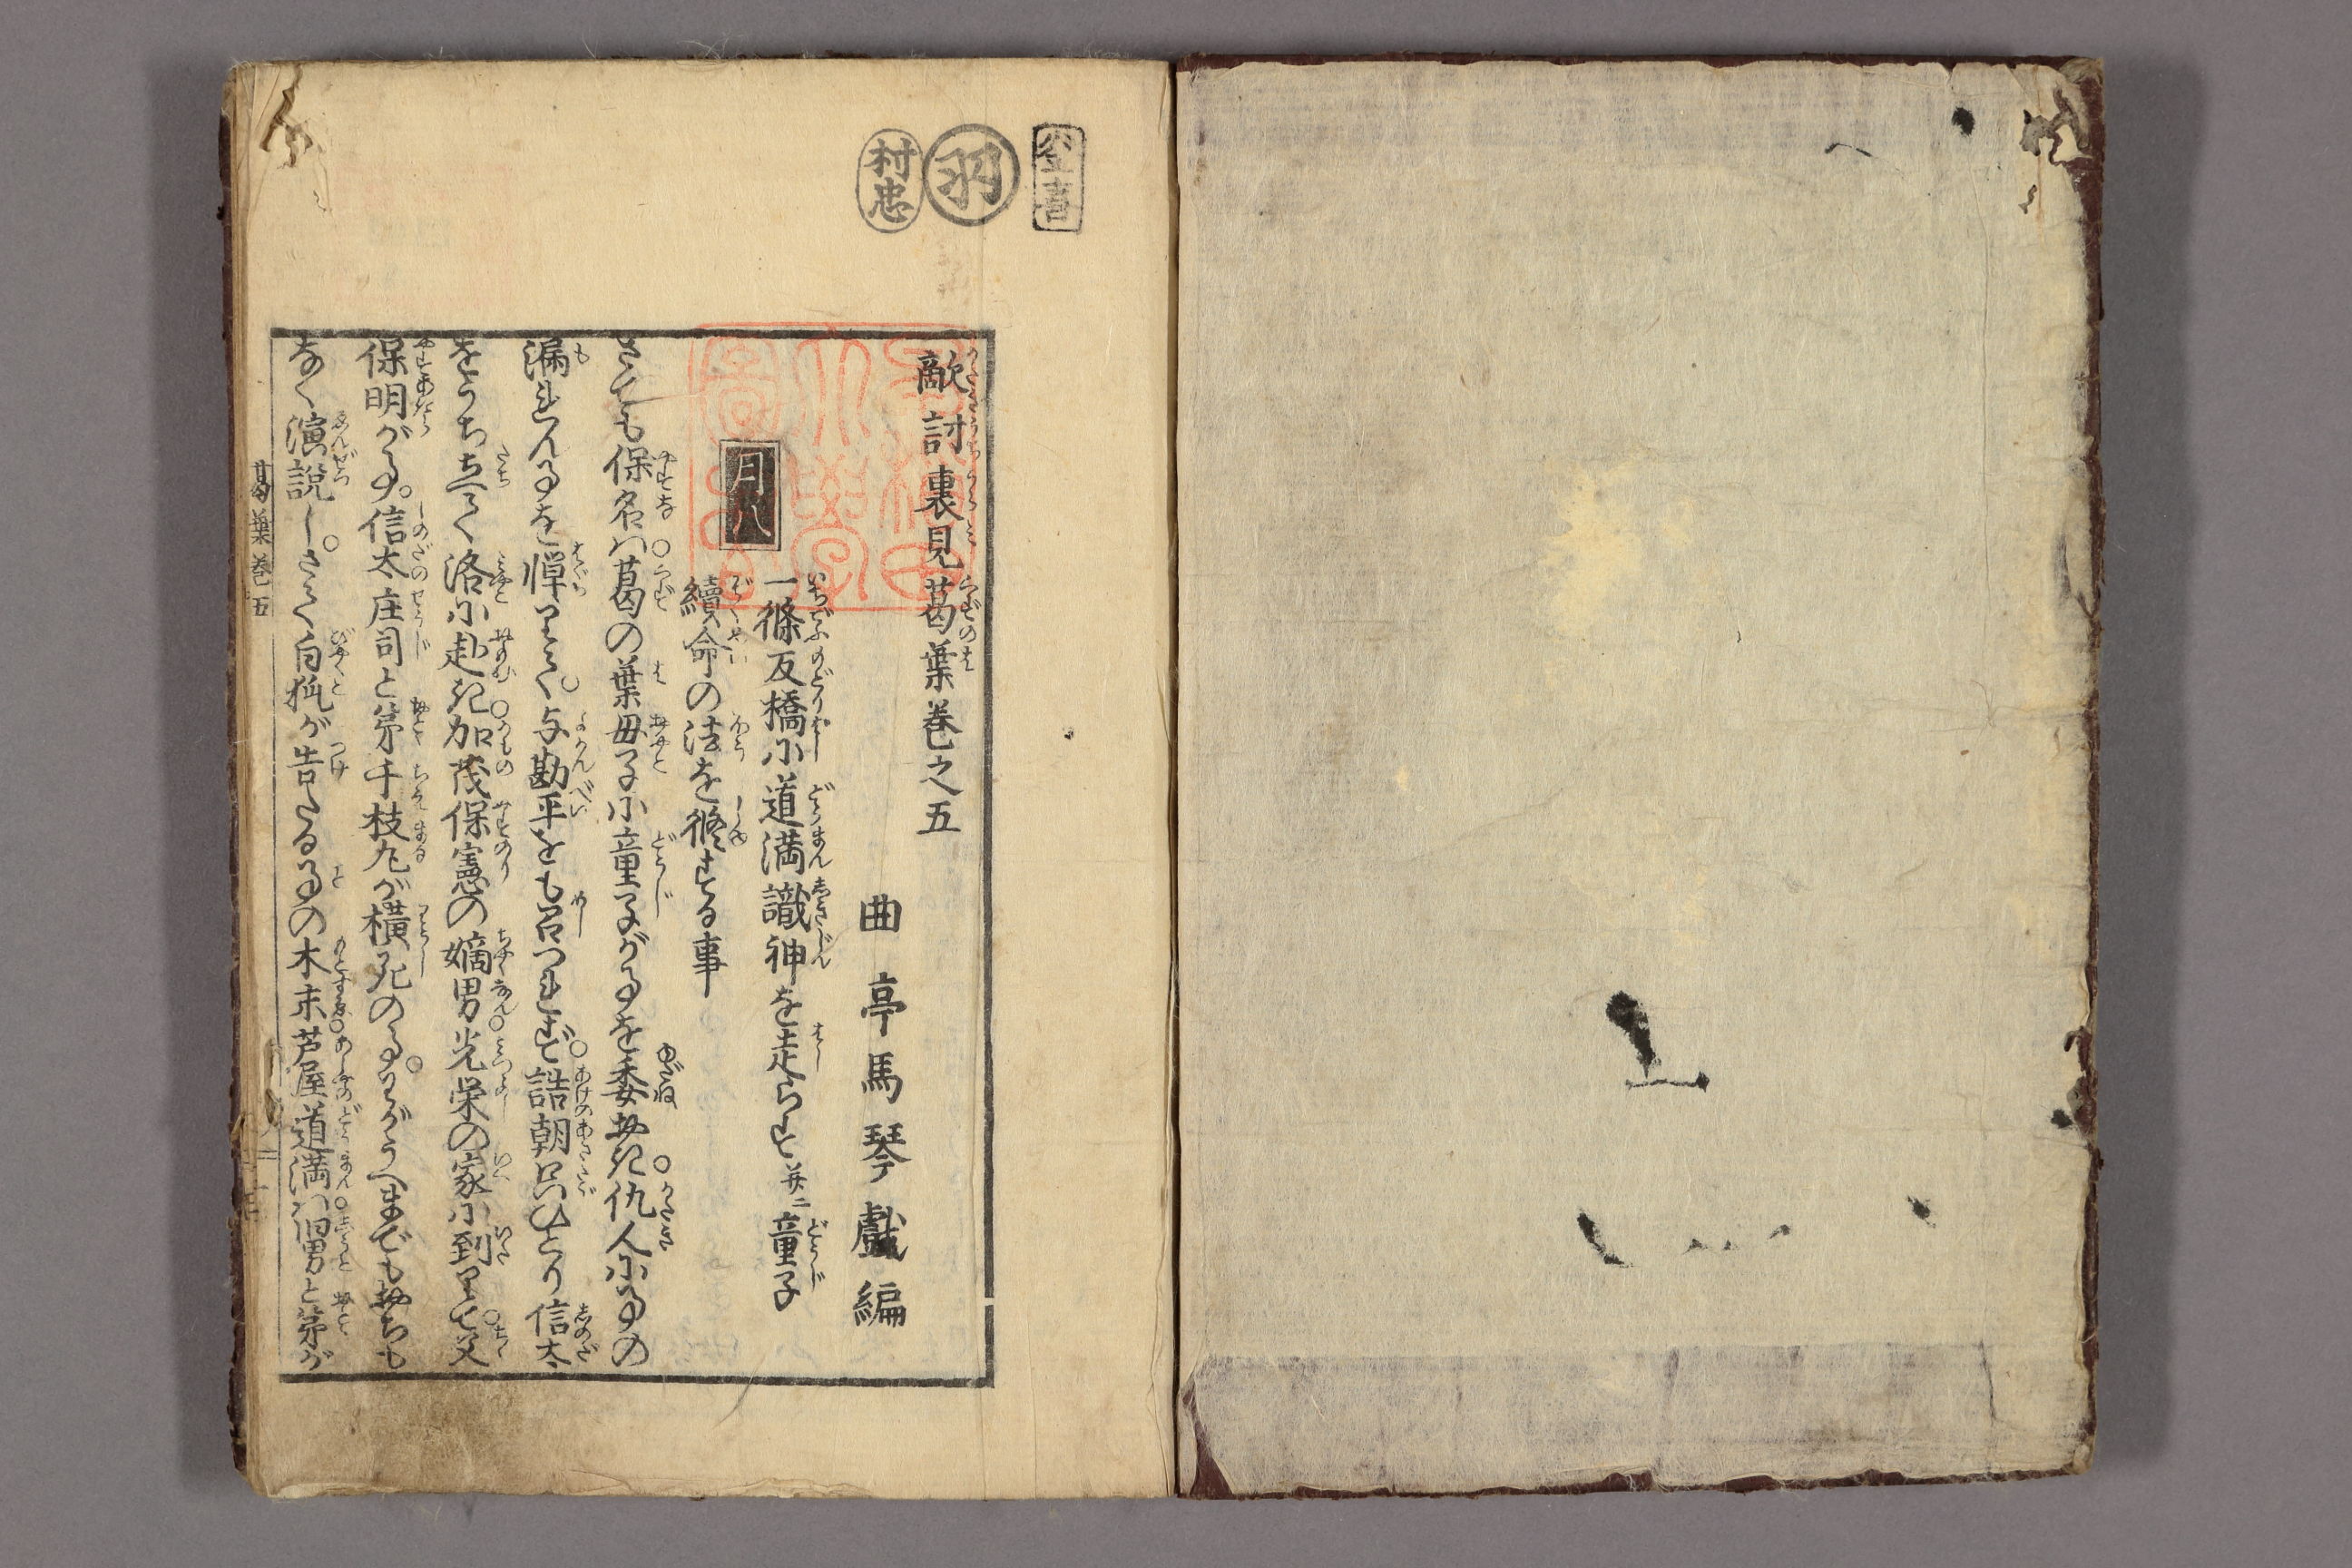 羽
村忠
敵討裏見葛葉巻之五
曲亭馬琴戯編
一條反橋に道満識神を走らす并ニ童子
續命の法を修する事
さても保名ハ葛の葉母子に童子が事を委ねおき仇人に事の
漏れん事を憚りて与勘平をも召つれず詰朝只ひとり信太
をうち立て洛に赴き加茂保憲の嫡男光栄の家に到りて父
保明が事信太庄司と弟千枝丸が横死の事わがうへまでもおちも
なく演説しさて白狐が告たる事の木末芦屋道満ハ旧男と弟が
葛葉巻五